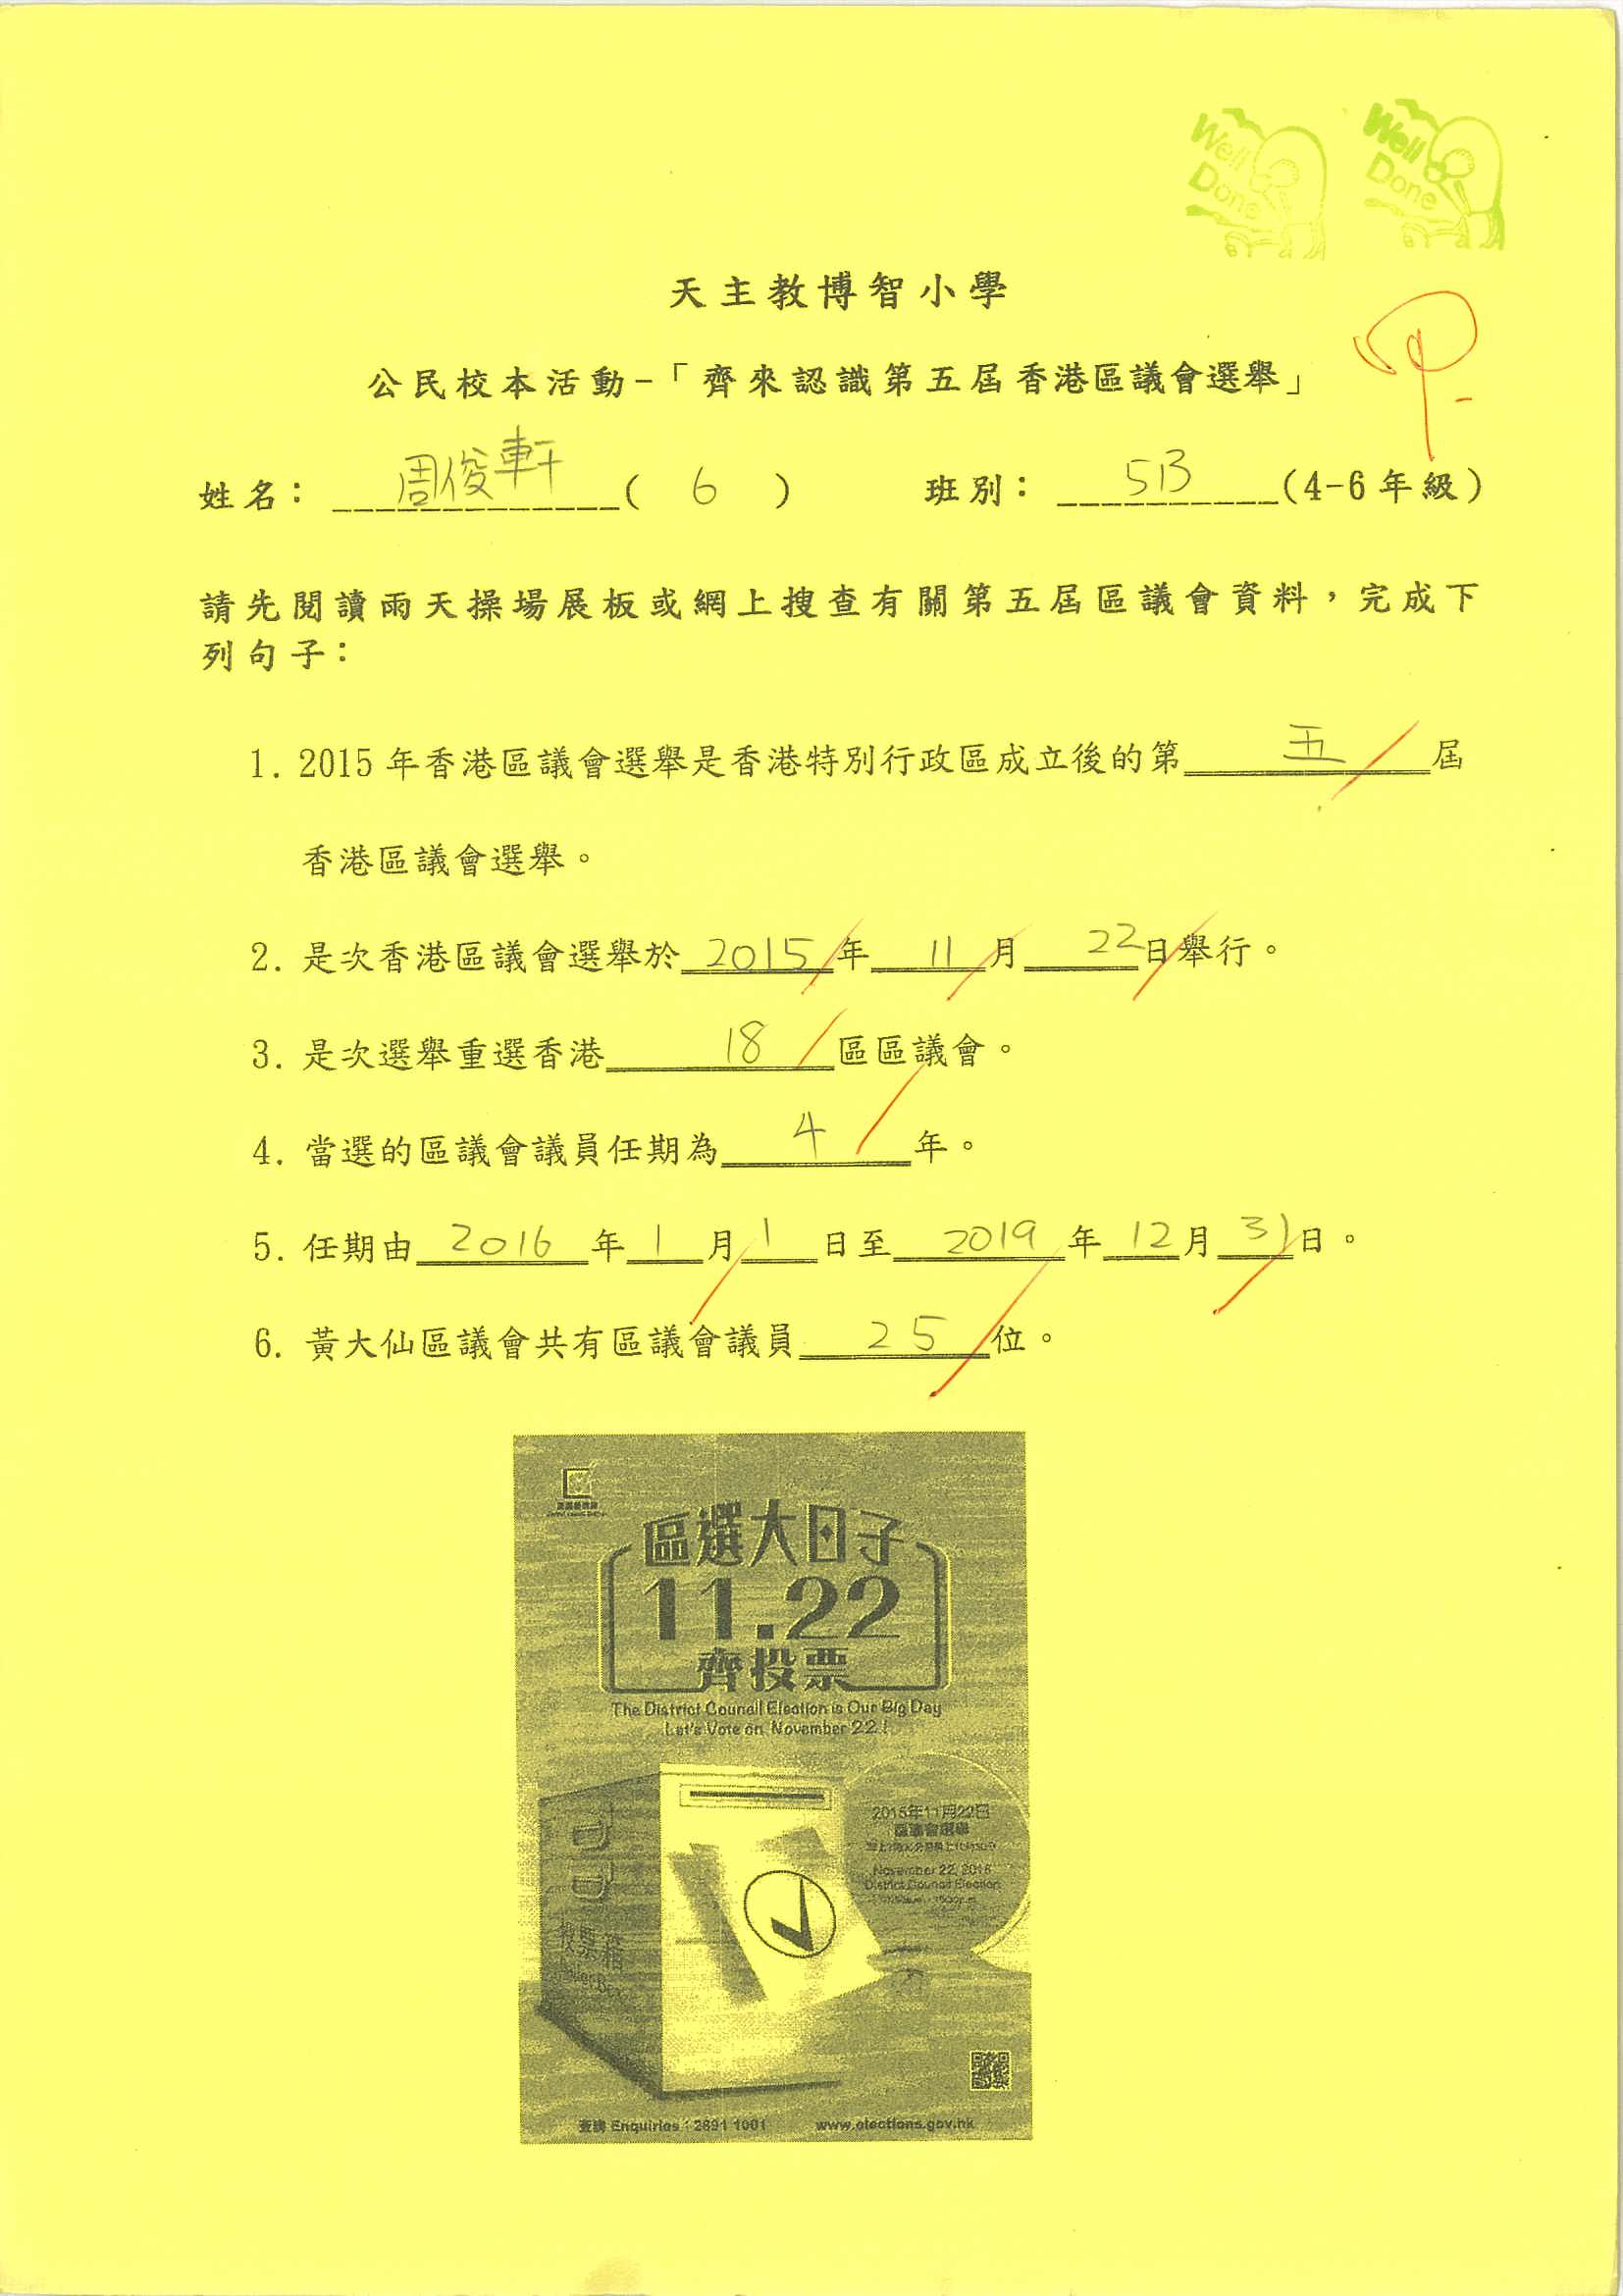 Well Done
Well Done
天主教博智小學
甲-
公民校本活動-「齊來認識第五屆香港區議會選舉」
姓名： 周俊軒 ( 6 ) 班別： 5B (4-6年級)
請先閱讀雨天操場展板或網上搜查有關第五屆區議會資料，完成下
列句子：
1. 2015年香港區議會選舉是香港特別行政區成立後的第 五 屆
香港區議會選舉。
2. 是次香港區議會選舉於 2015 年 11 月 22 日舉行。
3. 是次選舉重選香港 18 區區議會。
4. 當選的區議會議員任期為 4 年。
5. 任期由 2016 年 1 月 1 日至 2019 年 12 月 31 日。
6. 黃大仙區議會共有區議會議員 25 位。
區選大日子
11.22
齊投票
The District Council Election is Our Big Day
Let's Vote on November 22!
2015年11月22日
區議會選舉
November 22, 2015
District Council Election
投票箱
Ballot Box
查詢 Enquiries : 2891 1001 www.elections.gov.hk